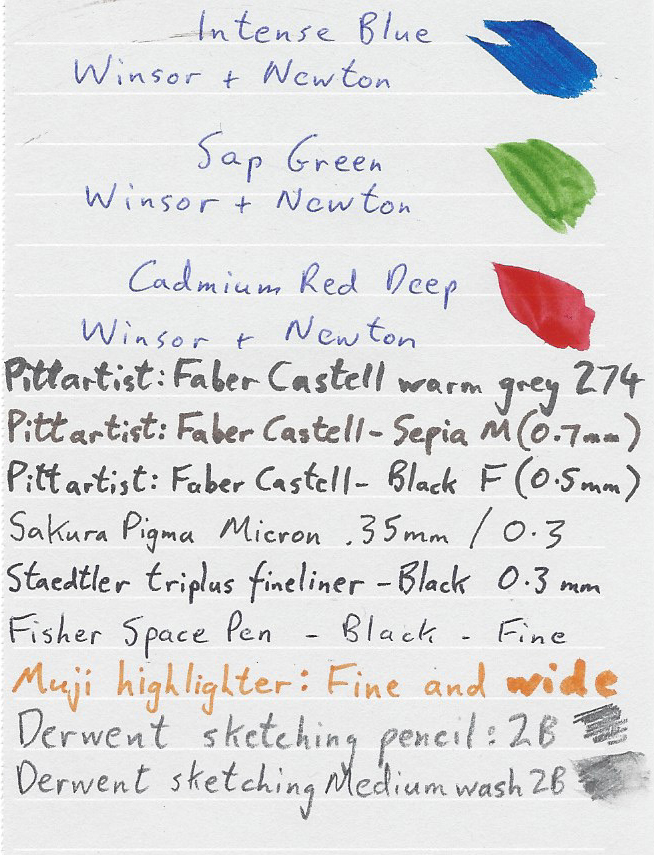 Intense Blue
Winsor + Newton
Sap Green
Winsor + Newton
Cadmium Red Deep
Winsor + Newton
Pittartist: Faber Castell warm grey 274
Pittartist: Faber Castell - Sepia M (0.7mm)
Pittartist: Faber Castell - Black F (0.5mm)
Sakura Pigma Micron .35mm / 0.3
Staedtler triplus fineliner - Black 0.3 mm
Fisher Space Pen - Black - Fine
Muji highlighter: Fine and wide
Derwent sketching pencil: 2B
Derwent sketching Medium wash 2B